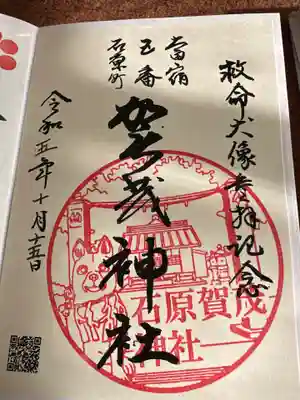 救命犬像参拝記念
五番
石原町
賀茂神社
令和五年十月十五日
石原賀茂
神社